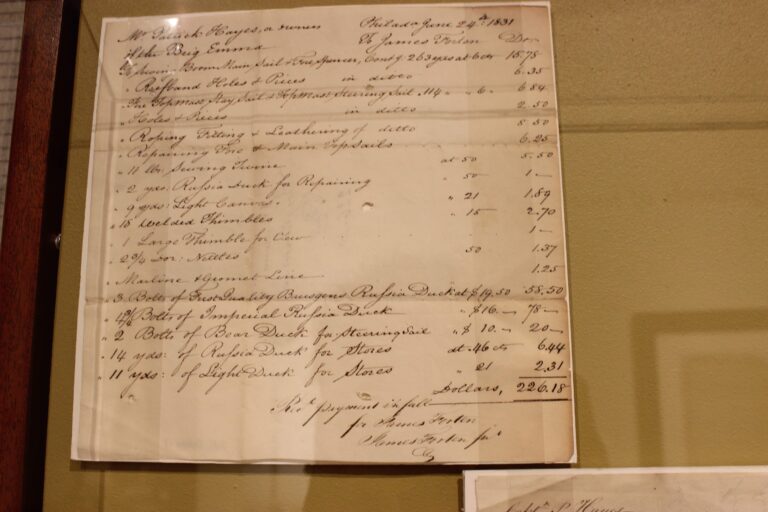 Mr Patrick Hayes, a owner Philada June 24th 1831
of the Brig Emma To James Forten Dr
To sewing Boom Main Sail & Fore Spencer, Contg 263 yds at 6 cts 15.78
" Reefband Holes & Pieces in ditto 6.35
" Fore TopMast Stay Sail & TopMast Steering Sail 114 " " 6 " 6.84
" Holes & Pieces in ditto 2.50
" Roping Fitting & Leathering of ditto 8.50
" Repairing Fore & Main Topsails 6.25
" 11 lbs: Sewing Twine at 50 5.50
" 2 yds: Russia Duck for Repairing " 50 1 —
" 9 yds: Light Canvas " 21 1.89
" 18 Welded Thimbles " 15 2.70
" 1 Large Thimble for Clew 1 —
" 2 3/4 Doz: Nettles 50 1.37
" Marline & Gromet Line 1.25
" 3 Bolts of First Quality Russia Duck at $19.50 58.50
" Bolts of Imperial Russia Duck " $16.— 78 —
" 2 Bolts of Bear Duck for Steering Sail " $ 10.— 20 —
" 14 yds: of Russia Duck for Stores at .46 cts 6.44
" 11 yds: of Light Duck for Stores " 21 2.31
Dollars, 226.18
Recd payment in full
for James Forten
James Forten Jur
Capt P. Hayes